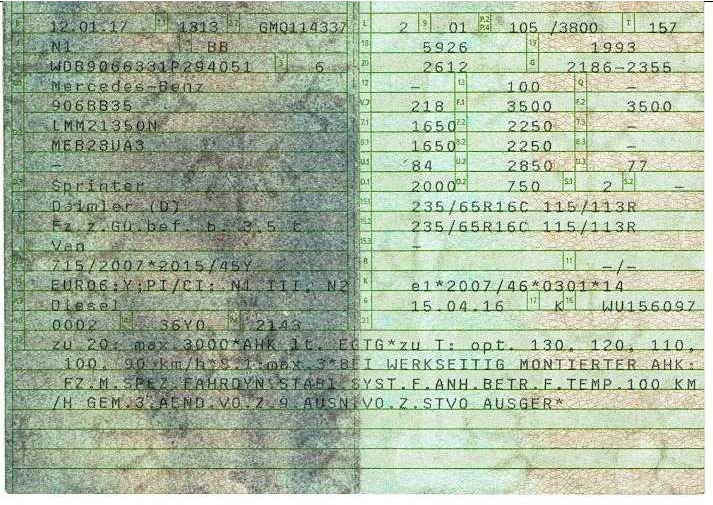 12.01.17 1813 GM0114337 L 2 9 01 P.2 P.4 105 /3800 T 157
N1 BB 18 5926 19 1993
WDB9066331P294051 3 6 20 2612 G 2186-2355
Mercedes-Benz 12 - 13 100 Q -
906BB35 V.7 218 F.1 3500 F.2 3500
LMM21350N 7.1 1650 7.2 2250 7.3 -
MEB28UA3 8.1 1650 8.2 2250 8.3 -
- U.1 84 U.2 2850 U.3 77
Sprinter O.1 2000 O.2 750 S.1 2 S.2 -
Daimler (D) 15.1 235/65R16C 115/113R
Fz.z.Gü.bef. b. 3,5 t 15.2 235/65R16C 115/113R
Van 15.3 -
715/2007*2015/45Y R 11 -/-
EURO6;Y;PI/CI; N1 III, N2 K e1*2007/46*0301*14
Diesel 6 15.04.16 17 K 16 WU156097
0002 36Y0 2143 21
zu 20: max.3000*AHK lt. EGTG*zu T: opt. 130, 120, 110,
100, 90 km/h*S.1:max.3*BEI WERKSEITIG MONTIERTER AHK:
FZ.M.SPEZ.FAHRDYN.STABI.SYST.F.ANH.BETR.F.TEMP.100 KM
/H GEM.3.AEND.VO.Z.9.AUSN.VO.Z.STVO AUSGER*